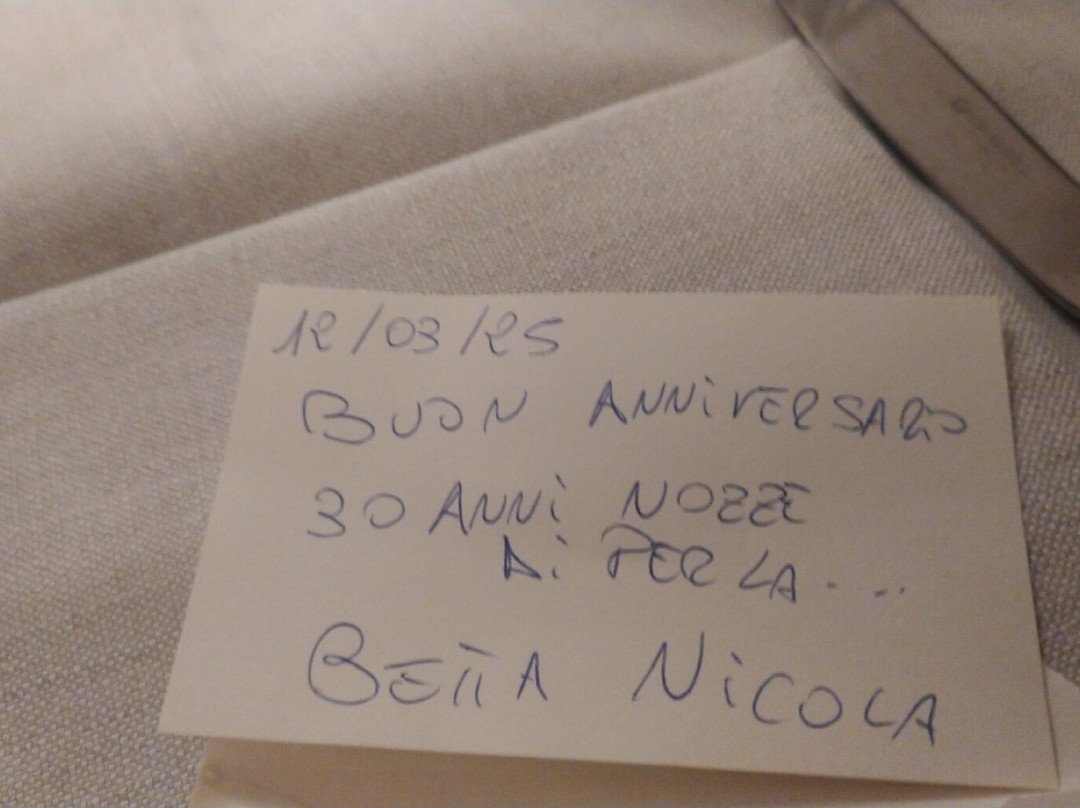 12/03/25
BUON ANNIVERSARIO
30 ANNI NOZZE
DI PERLA....
BETTA NICOLA